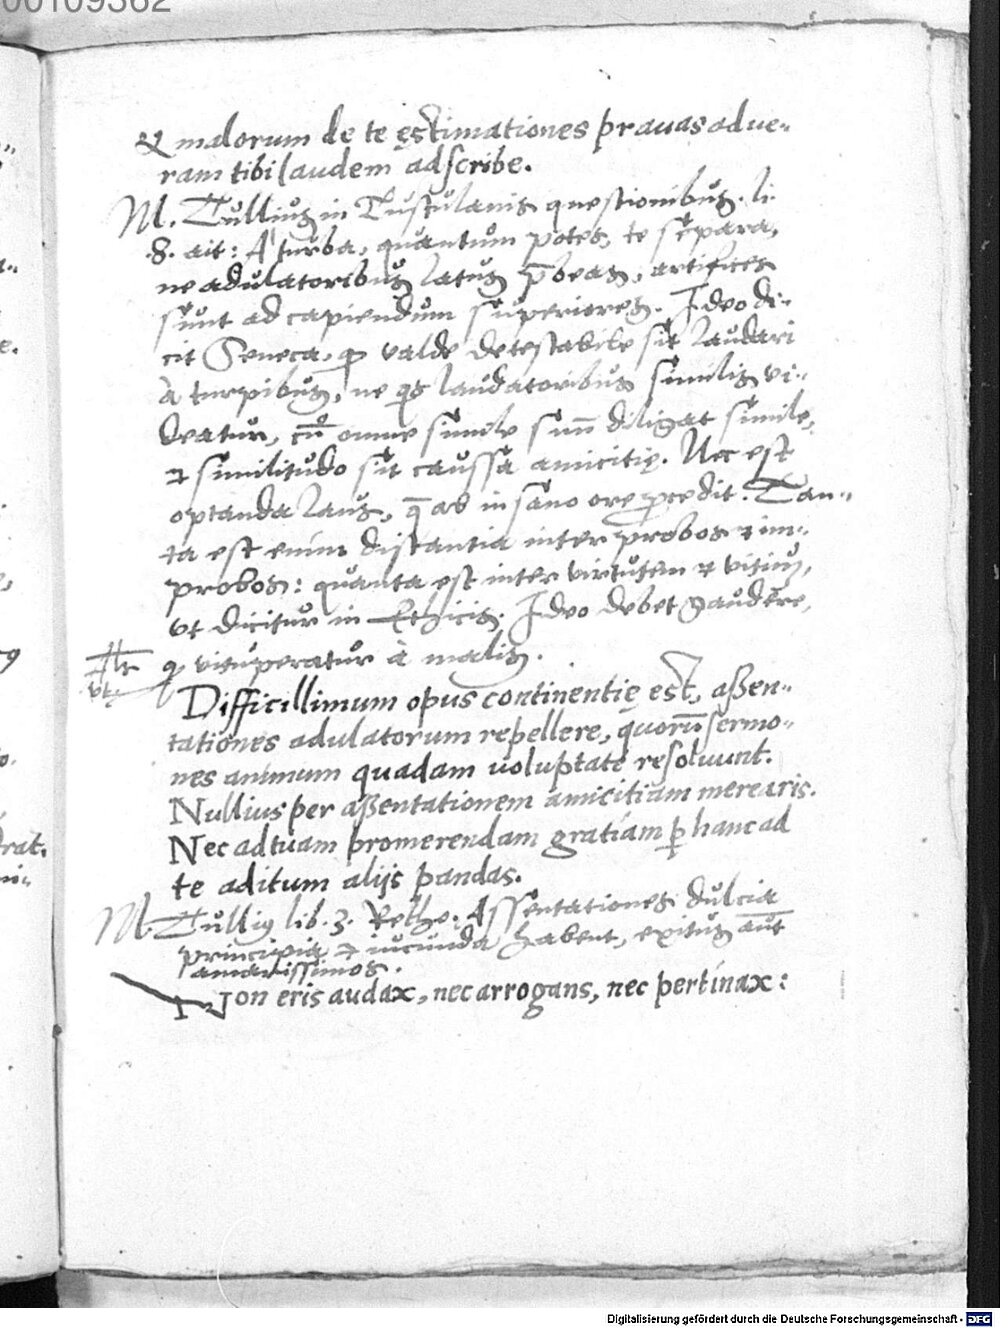 00109362
& malorum de te ęstimationes prauas adue„
ram tibi laudem adscribe.
M. Tullius in Tusculanis quęstionibus. li.
.8. ait: A turba, quantum potes, te sepera,
ne adulatoribus latus p̄beas, artifices
sunt ad capiendum superiores. Ideo di„
cit Seneca, ꝙ valde detestabile sit laudari
à turpibus, ne qs laudatoribus similis vi„
deatur, cū omne simile suū diligat simile,
⁊ similitudo sit caussa amicitię. Nec est
optanda laus, q̄ ab insano ore ꝓcedit. Tan„
ta est enim distantia inter probos ⁊ im„
probos: quanta est inter virtutem ⁊ vitiū,
vt dicitur in Ethicis. Ideo debet gaudere,
ꝙ vituperatur à malis.
Difficillimum opus continentię est, aßen„
tationes adulatorum repellere, quorū sermo„
nes animum quadam uoluptate resoluunt.
Nullius per aßentationem amicitiam merearis.
Nec ad tuam promerendam gratiam ꝑ hanc ad
te aditum alijs pandas.
M. Tullius lib. 3. Retho: Assentationes dulcia
principia ⁊ iucunda habent, exitus aūt
amarissimos.
Non eris audax, nec arrogans, nec pertinax:
Digitalisierung gefördert durch die Deutsche Forschungsgemeinschaft - DFG